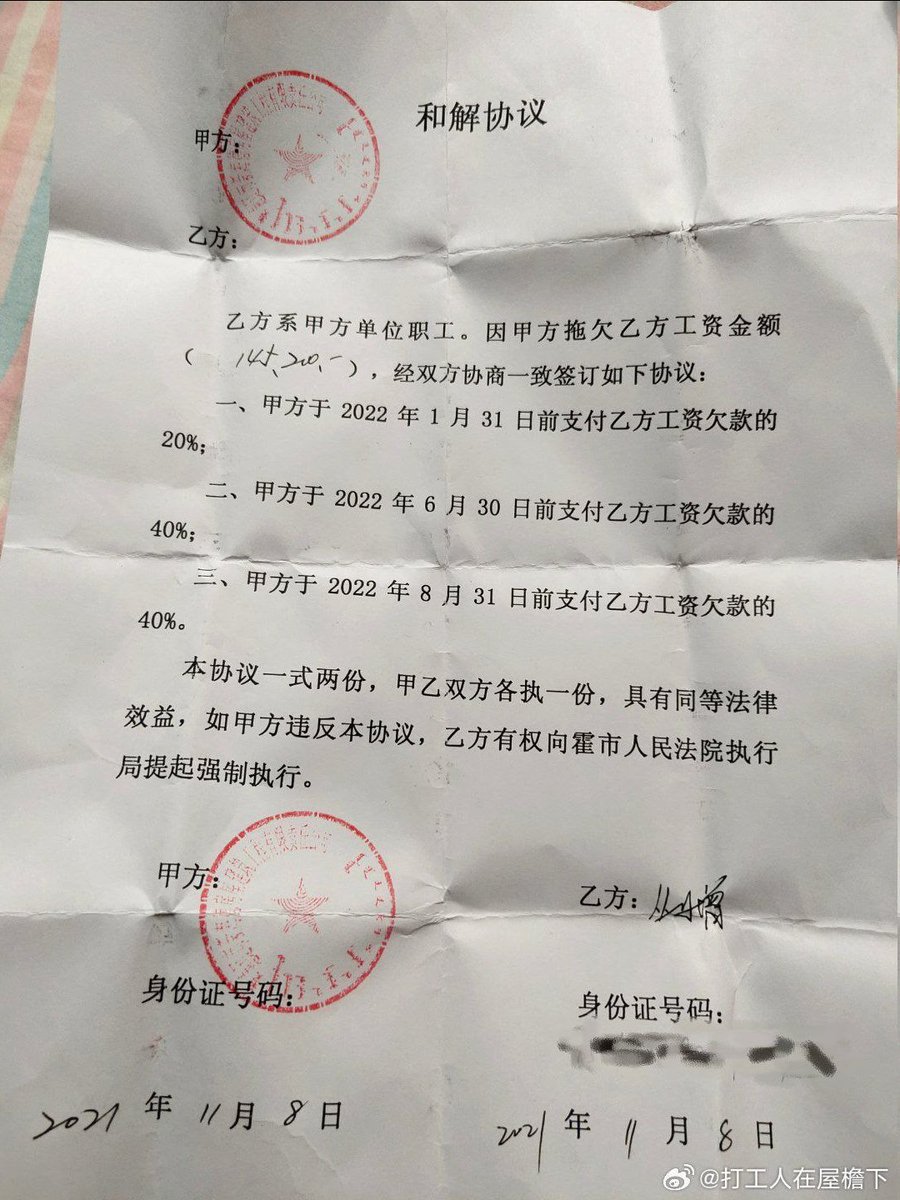 和解协议
甲方：
乙方：
乙方系甲方单位职工。因甲方拖欠乙方工资金额
（ ），经双方协商一致签订如下协议：
一、甲方于 2022 年 1 月 31 日前支付乙方工资欠款的
20%；
二、甲方于 2022 年 6 月 30 日前支付乙方工资欠款的
40%；
三、甲方于 2022 年 8 月 31 日前支付乙方工资欠款的
40%。
本协议一式两份，甲乙双方各执一份，具有同等法律
效益，如甲方违反本协议，乙方有权向霍市人民法院执行
局提起强制执行。
甲方：
乙方：
身份证号码：
身份证号码：
2021 年 11 月 8 日
2021 年 11 月 8 日
@打工人在屋檐下